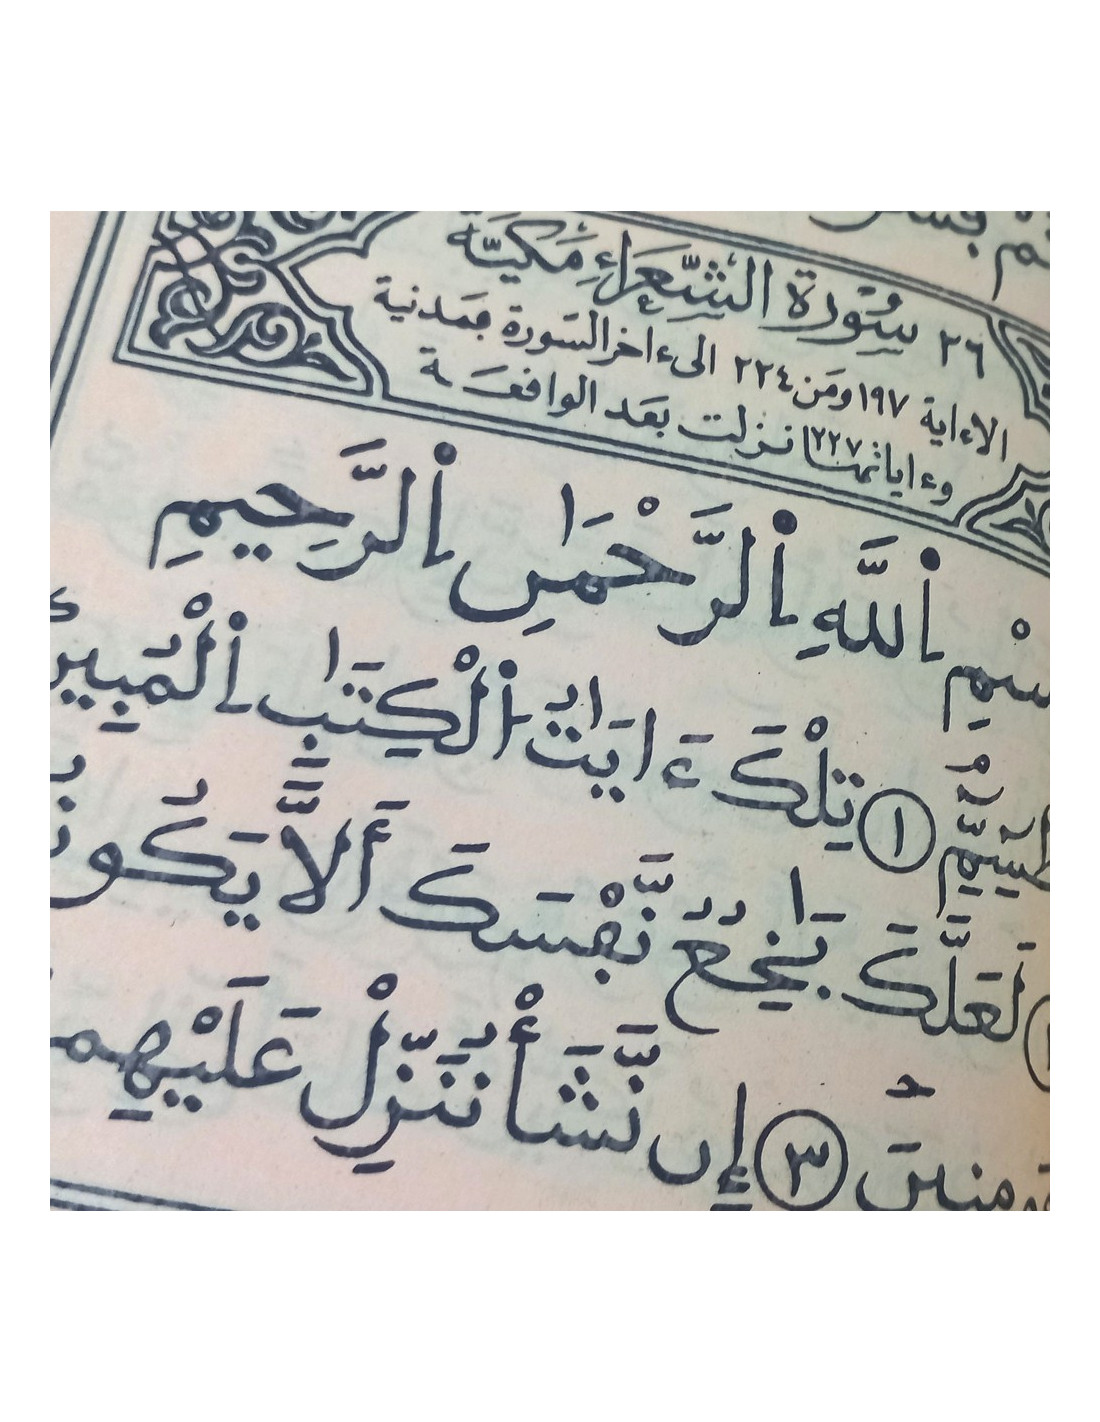 ٢٦ سُورَةُ الشُّعَرَاءِ مَكِيَّة
الاءاية ١٩٧ ومن ٢٢٤ الىءاخر السورة فمدنية
وءاياتها ٢٢٧ نزلت بعد الواقعة
اِ۬للَّهِ اِ۬لرَّحْمَٰنِ اِ۬لرَّحِيمِ
طَسِٓمِّٓۖ ١ تِلْكَ ءَايَٰتُ اُ۬لْكِتَٰبِ اِ۬لْمُبِينِ
لَعَلَّكَ بَٰخِعٞ نَّفْسَكَ أَلَّا
٣ إِن نَّشَأْ نُنَزِّلْ عَلَيْهِم